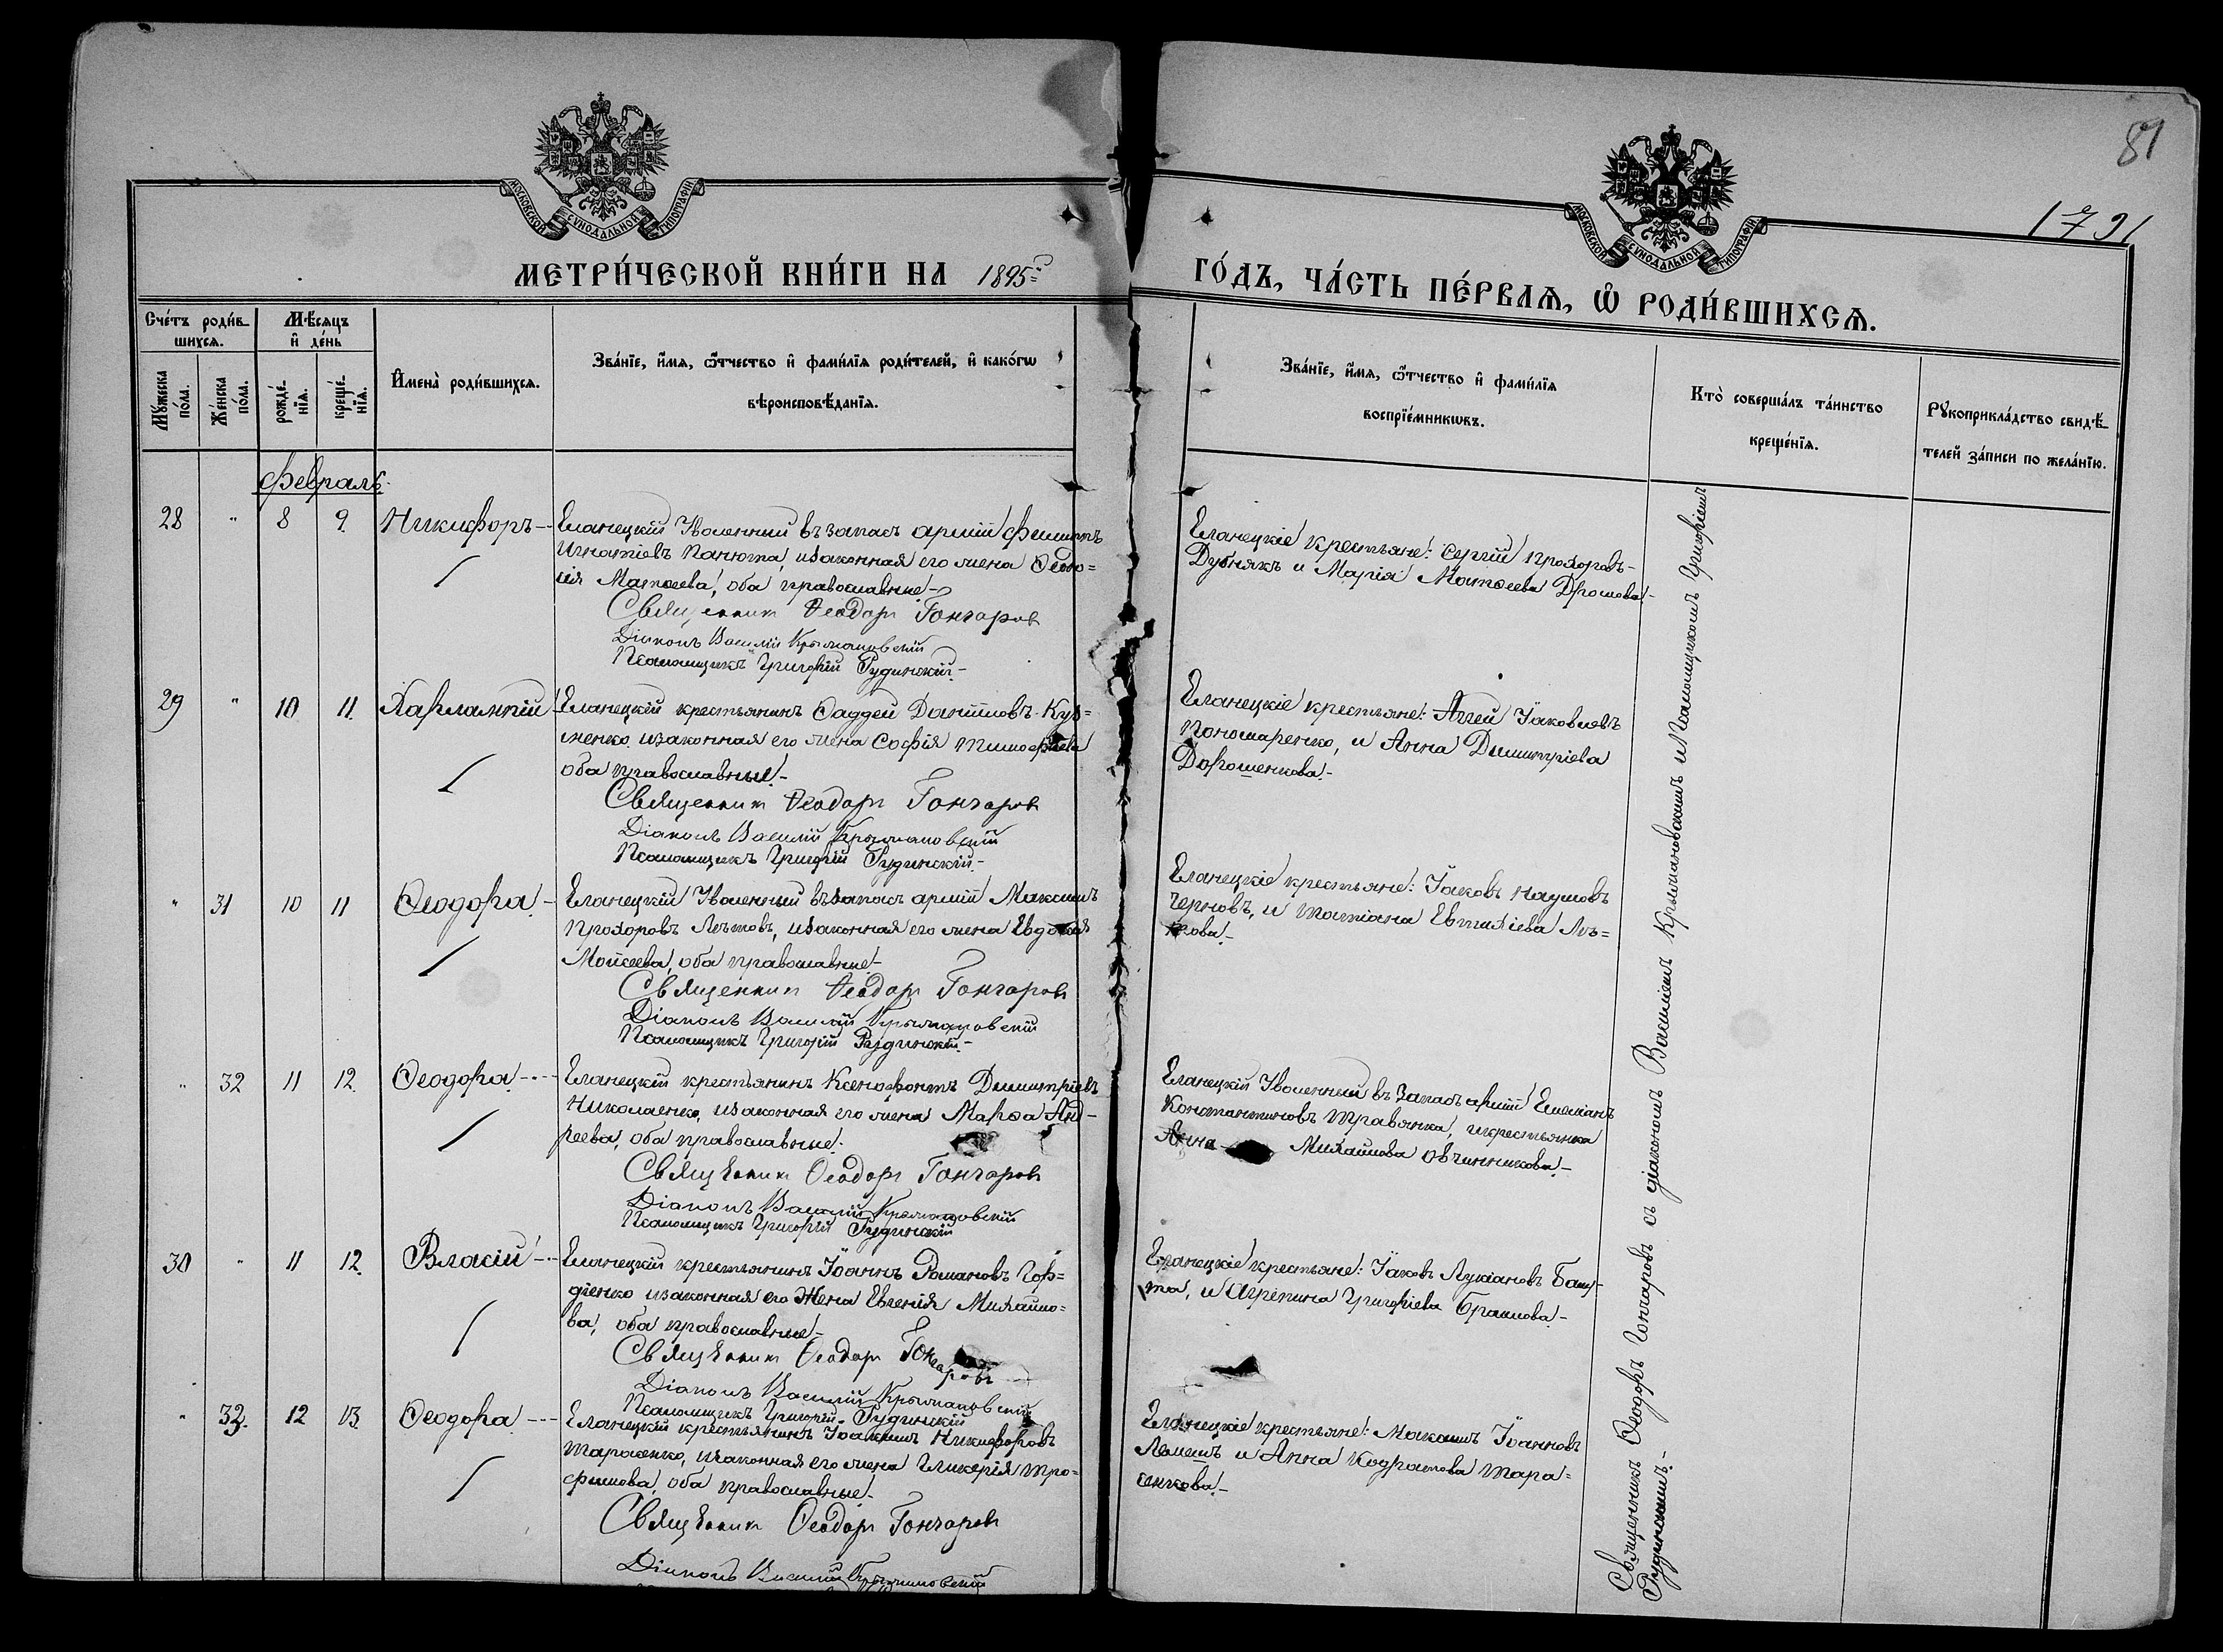 81
1791
МОСКОВСКОЙ СѴНОДАЛЬНОЙ ТИПОГРАФІИ
МОСКОВСКОЙ СѴНОДАЛЬНОЙ ТИПОГРАФІИ
МЕТРИ́ЧЕСКОЙ КНИ́ГИ НА 1895й
ГО́ДЪ, ЧА́СТЬ ПЕ́РВАѦ, Ѡ҆ РОДИ́ВШИХСѦ.
Сче́тъ роди́в-
шихсѧ.
Мꙋ́жеска
по́ла.
Же́нска
по́ла.
Мѣ́сяцъ
и҆ де́нь
рожде́-
нїѧ.
креще́-
нїѧ.
И҆мена̀ роди́вшихсѧ.
Зва́нїе, и҆́мѧ, ѻ҆́тчество и҆ фами́лїѧ роди́телей, и҆ како́гѡ
вѣроисповѣ́данїѧ.
Зва́нїе, и҆́мѧ, ѻ҆́тчество и҆ фами́лїѧ
воспрїе́мникѡвъ.
Кто̀ соверша́лъ та́инство
креще́нїѧ.
Рꙋкоприкла́дство свидѣ́-
телей за́писи по жела́нїю.
Февраль.
28 " 8 9. Никифоръ -- Еланецкій Уволенный въ запасъ арміи Филиппъ
Игнатіевъ Панюта, изаконная его жена Ѳеодо=
сія Матѳеева, оба православные.-
Священник Ѳеодор Гончаров
Діаконъ Василій Крыжановскій
Псаломщикъ Григорій Рудинскій.-
Еланецкіе крестьяне: Сергій Прохоровъ-
Дубнякъ и Марія Матѳеева
29 " 10 11. Харлампій Еланецкій крестьянинъ Ѳаддей Даніиловъ Куз=
менко, изаконная его жена Софія Тимоѳеева
оба православные.-
Священник Ѳеодор Гончаров
Діаконъ Василій Крыжановскій
Псаломщикъ Григорій Рудинскій.-
Еланецкіе крестьяне: Аггей Іаковлевъ
Пономаренко, и Анна Димитріева
Дорошенкова.-
" 31 10 11 Ѳеодора.- Еланецкій Уволенный въ запасъ арміи Максимъ
Прохоровъ изаконная его жена Евдокія
Моисеева, оба православные.-
Священник Ѳеодор Гончаров
Діаконъ Василій Крыжановскій
Псаломщикъ Григорій Рудинскій.-
Еланецкіе крестьяне: Іаковъ Наумовъ
Черновъ, и Татіана Евтихіева
" 32 11 12. Ѳеодора.-- Еланецкій крестьянинъ Ксенофонтъ Димитріевъ
Николаенко, изаконная его жена Марѳа Анд-
реева, оба православные.
Священник Ѳеодор Гончаров
Діаконъ Василій Крыжановскій
Псаломщикъ Григорій Рудинскій
Еланецкій Уволенный въ запасъ арміи Емеліанъ
Константиновъ Травянка, икрестьянка
Анна Михайлова Овчинникова.-
30 " 11 12. Власій -- Еланецкій крестьянинъ Іоаннъ Романовъ Гор=
діенко изаконная его жена Евгенія Михайло=
ва, оба православные.-
Священник Ѳеодор Гончаровъ
Діаконъ Василій Крыжановскій
Псаломщикъ Григорій Рудинскій
Еланецкіе крестьяне: Іаковъ Лукіановъ Баш-
та, и Агрепина Григорьева Браилова.-
" 33. 12 13. Ѳеодора.-- Еланецкій крестьянинъ Іоакимъ Никифоровъ
Тарасенко, изаконная его жена Гликерія Тро=
фимова, оба православные.-
Священник Ѳеодор Гончаров
Діаконъ Василій Крыжановскій
Еланецкіе крестьяне: Максимъ Іоанновъ
Лемешъ и Анна Кодратова Тара=
сенкова.-
Священникъ Ѳеодоръ Гончаровъ съ діакономъ Василіемъ Крыжановскимъ и Псаломщикомъ Григоріемъ
Рудинскимъ.-